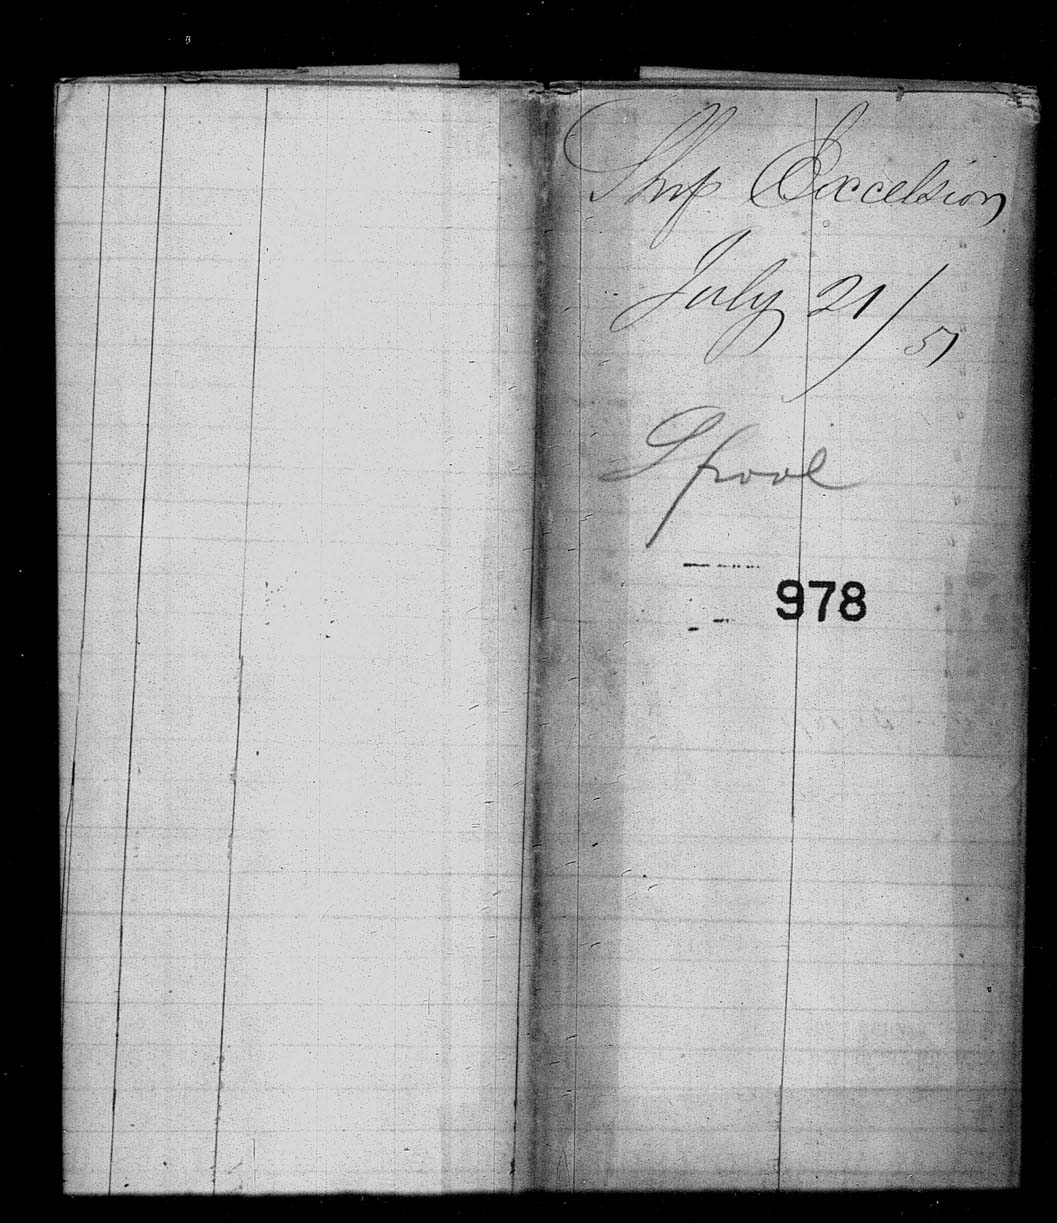 Ship Excelsior
July 21/51
Lpool
978